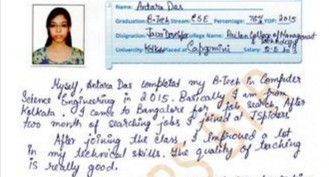 Name Antara Das
Graduation B-Tech Stream CSE Percentage: 76% YOP: 2015
Designation Java Developer College of Management
University Kolkata Capgemini Salary
Myself, Antara Das completed my B-Tech in Computer
Science Engineering in 2015. Basically I am from
Kolkata. I came to Bangalore for job search. After
two month of searching jobs I joined at JSpiders.
After joining the class, I improved a lot
in my technical skills. The quality of teaching
is really good.